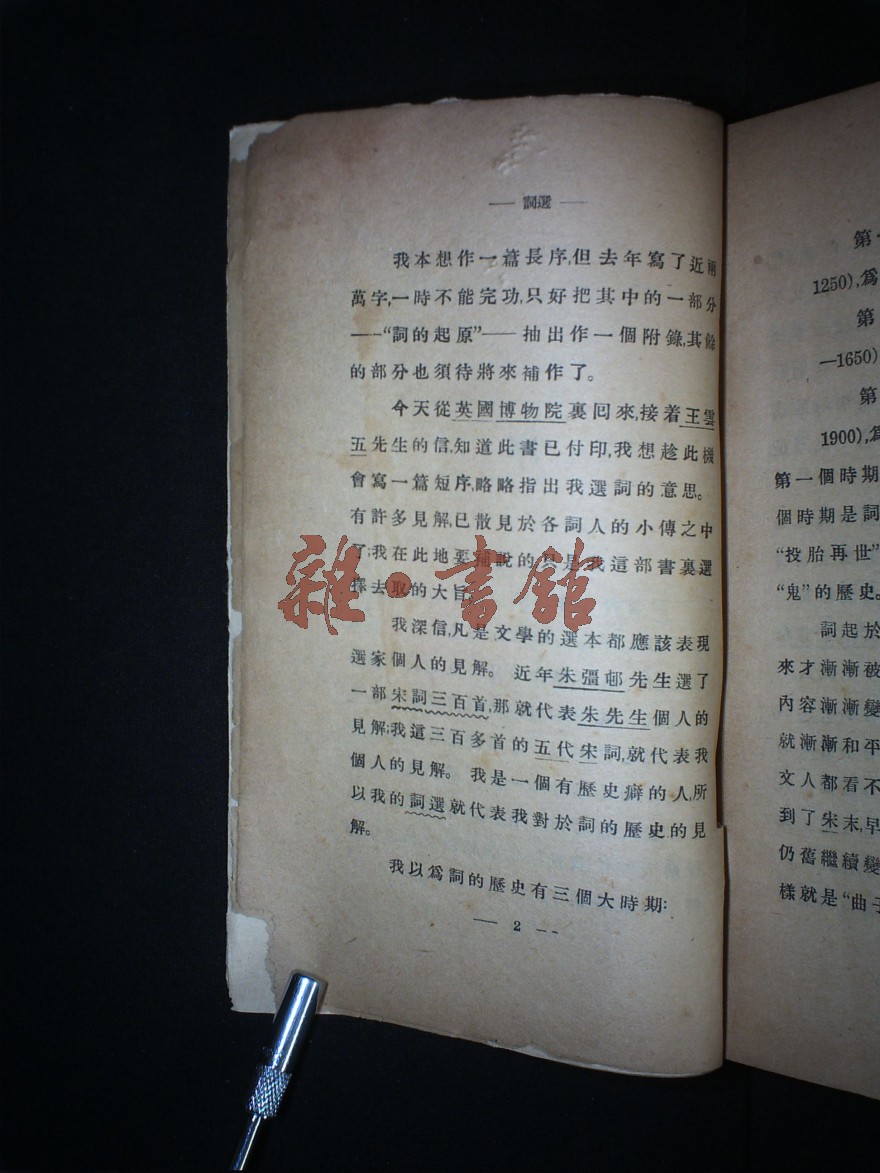 —— 詞選 ——
我本想作一篇長序,但去年寫了近兩
萬字,一時不能完功,只好把其中的一部分
——“詞的起原”——抽出作一個附錄,其餘
的部分也須待將來補作了。
今天從英國博物院裏回來,接着王雲
五先生的信,知道此書已付印,我想趁此機
會寫一篇短序,略略指出我選詞的意思。
有許多見解,已散見於各詞人的小傳之中
了;我在此地要補說的只是我這部書裏選
擇去取的大旨。
我深信,凡是文學的選本都應該表現
選家個人的見解。 近年朱彊邨先生選了
一部宋詞三百首,那就代表朱先生個人的
見解;我這三百多首的五代宋詞,就代表我
個人的見解。 我是一個有歷史癖的人,所
以我的詞選就代表我對於詞的歷史的見
解。
我以爲詞的歷史有三個大時期:
— 2 —
第一
1250),爲
第
—1650)
第
1900),爲
第一個時期
個時期是詞
“投胎再世”
“鬼”的歷史。
詞起於
來才漸漸被
內容漸漸變
就漸漸和平
文人都看不
到了宋末,早
仍舊繼續變
樣就是“曲子
雜·書館